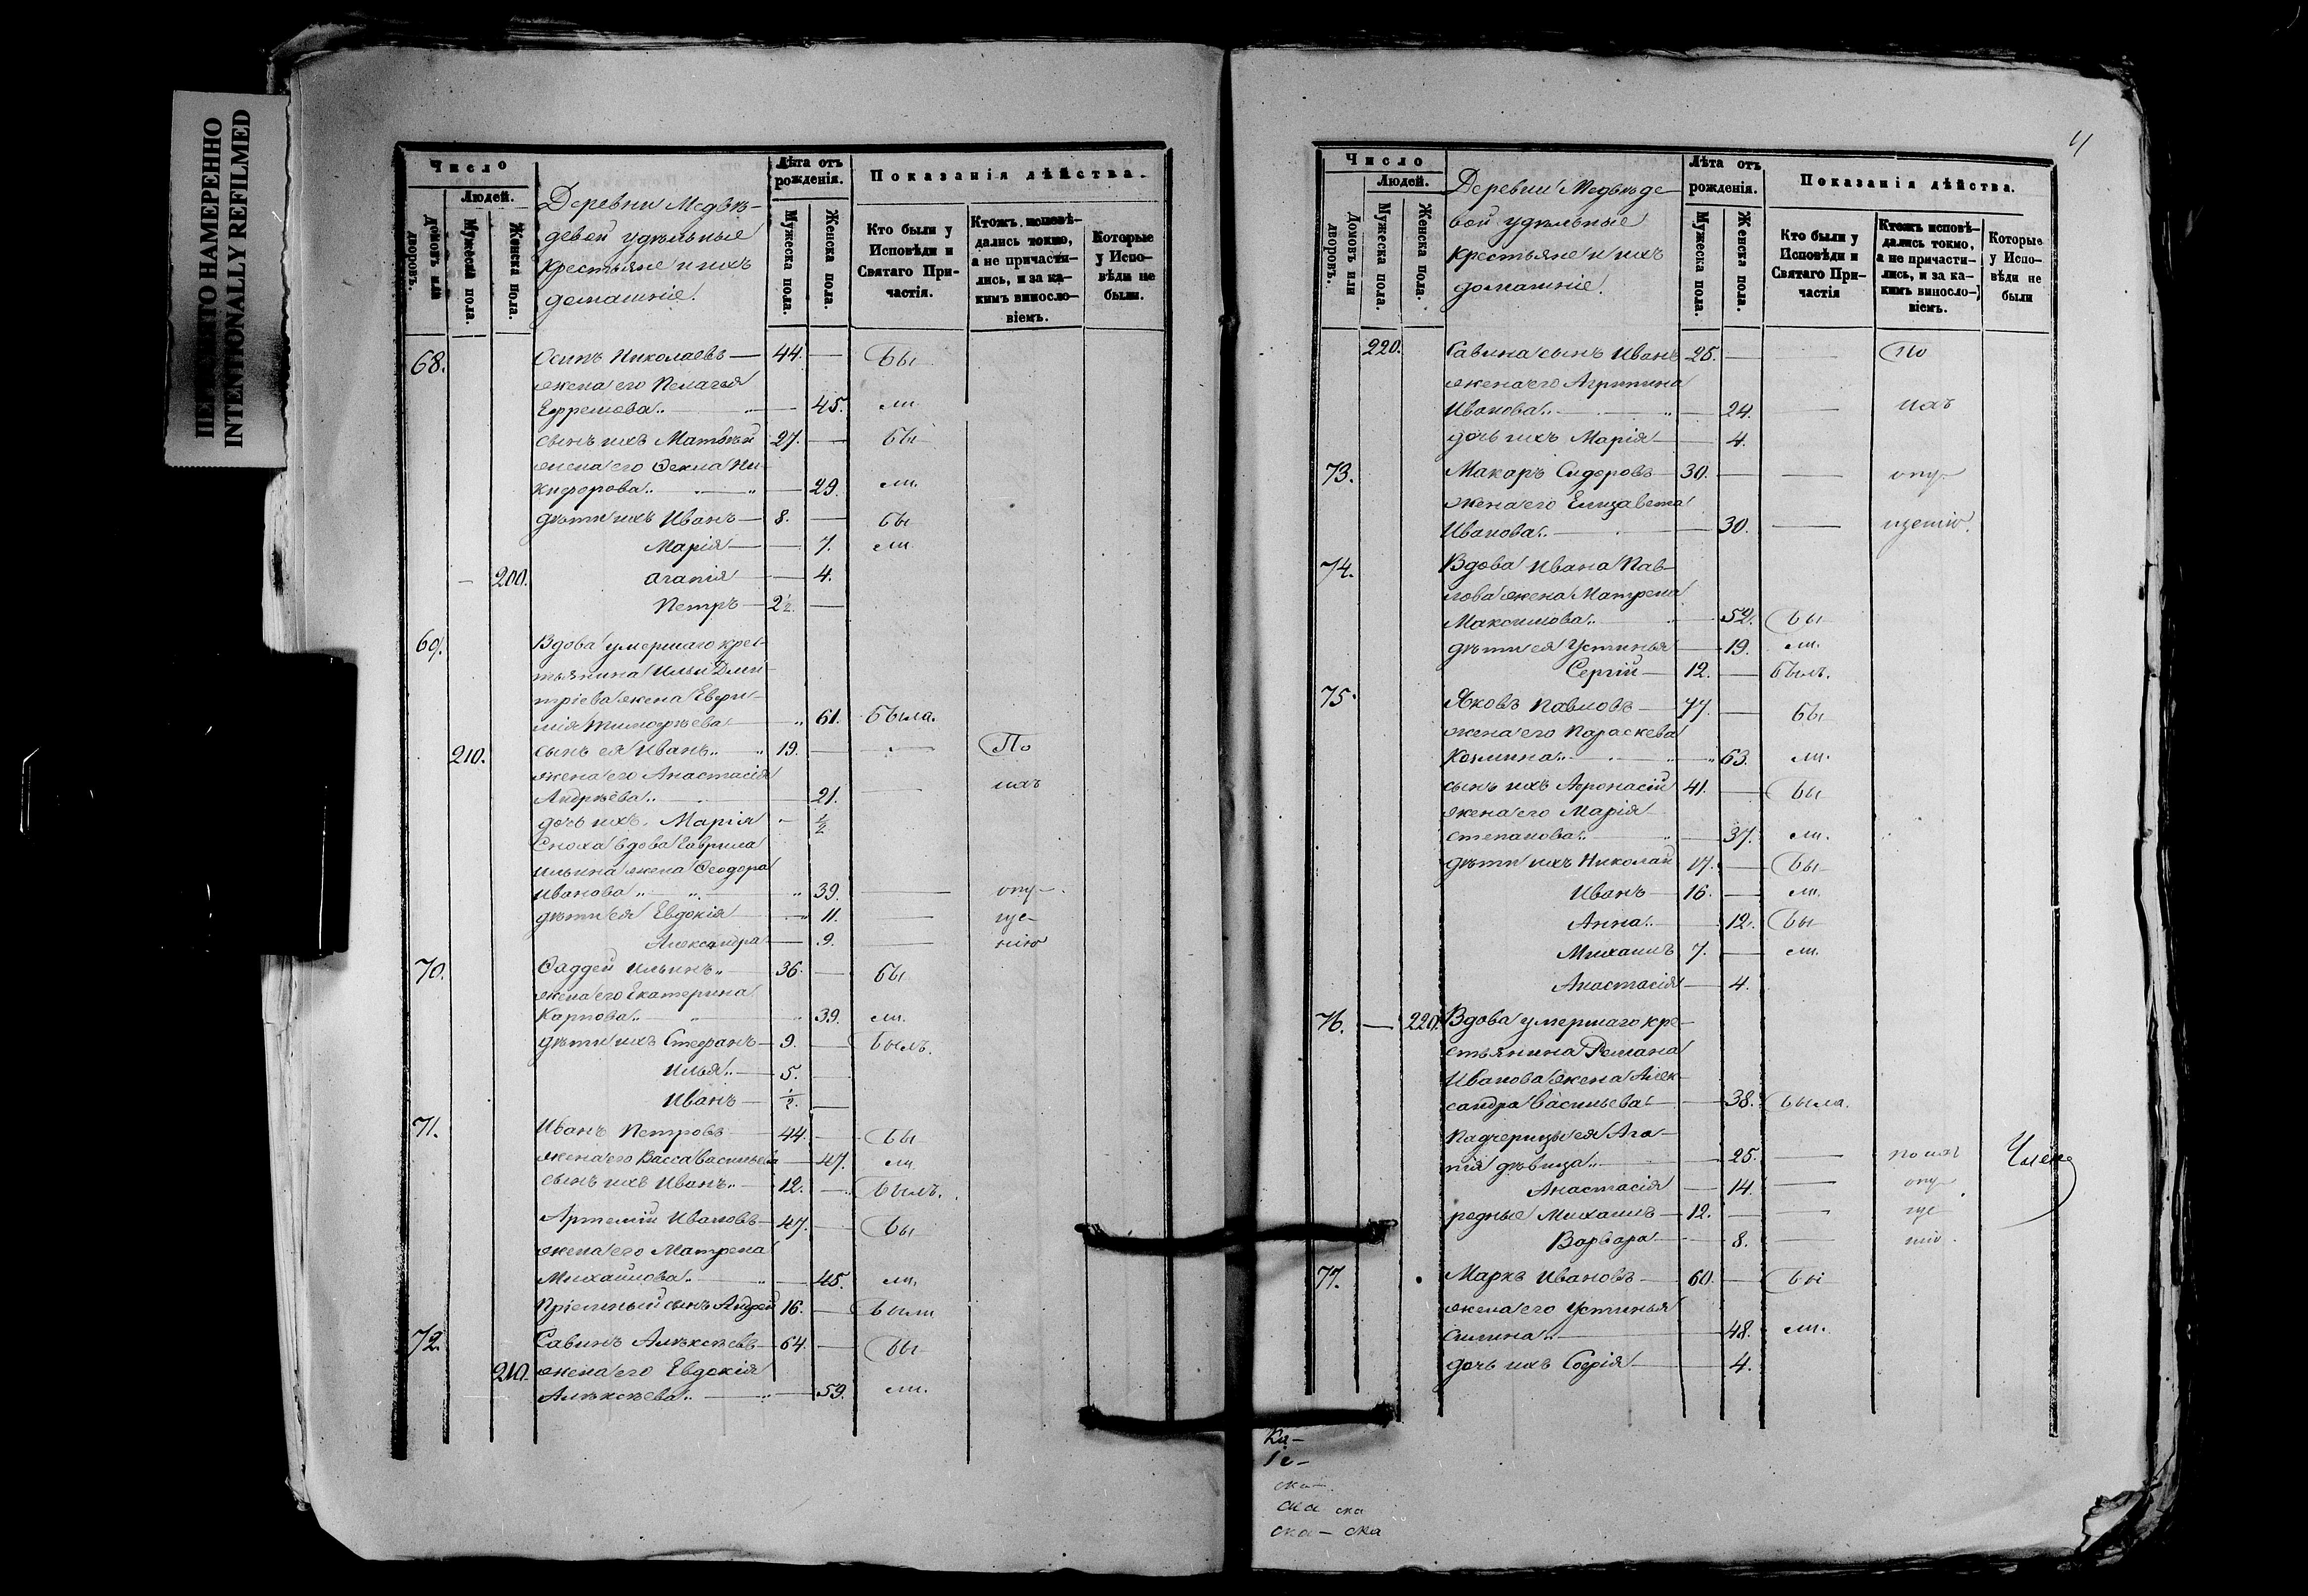 НАМЕРЕННО
INTENTIONALLY REFILMED
Число
Людей.
Домовъ или дворовъ.
Мужеска пола.
Женска пола.
Деревни Медвѣ-
девой удѣльные
крестьяне и ихъ
домашніе.
Лѣта отъ
рожденія.
Мужеска пола.
Женска пола.
Показанія дѣйства.
Кто были у
Исповѣди и
Святаго При-
частія.
Ктожъ исповѣ-
дались токмо,
а не причасти-
лись, и за ка-
кимъ виносло-
віемъ.
Которые
у Испо-
вѣди не
были.
68. Осипъ Николаевъ — 44. — Бы
жена его Пелагея
Ефремова.. — 45. ли
сынъ ихъ Матвѣй 27. — Бы
жена его Ѳекла Ни-
кифорова.. — 29. ли.
дѣти ихъ Иванъ — 8. — Бы
Марія — 7. ли.
— 200. Агапія — 4.
Петръ — 2 1/2. —
69. Вдова умершаго крес-
тьянина Ильи Дми-
тріева жена Евфи-
мія Тимофѣева — 61. Была.
210. сынъ ея Иванъ.. 19. — — По
жена его Анастасія
Андрѣева.. 21. — мах
дочь ихъ Марія — 1/2
Сноха вдова Гаврила
Ильина жена Ѳеодора
Иванова.. 39. — опу-
дѣти ея Евдокія — 11. — ще-
Александра — 9. — нію
70. Ѳаддей Ильинъ.. 36. — Бы
жена его Екатерина
Карпова.. 39. ли.
дѣти ихъ Стефанъ — 9. — Былъ.
Илья.. — 5. —
Иванъ — 1/2. —
71. Иванъ Петровъ — 44. — Бы
жена его Васса Васильева — 47. ли
сынъ ихъ Иванъ.. — 12. — Былъ.
Артемій Ивановъ — 47. — Бы
жена его Матрена
Михайлова.. — 45. ли.
Пріемный сынъ Андрей 16. — Были
72. Савинъ Алексѣевъ — 64. — Бы
210. жена его Евдокія
Алексѣева.. — 59. ли.
4
Число
Людей.
Домовъ или дворовъ.
Мужеска пола.
Женска пола.
Деревни Медвѣде-
вой удѣльные
крестьяне и ихъ
домашніе.
Лѣта отъ
рожденія.
Мужеска пола.
Женска пола.
Показанія дѣйства.
Кто были у
Исповѣди и
Святаго При-
частія
Ктожъ исповѣ-
дались токмо,
а не причасти-
лись, и за ка-
кимъ виносло-
віемъ.
Которые
у Испо-
вѣди не
были
220. Савина сынъ Иванъ 25. — — По
жена его Агрипина
Иванова.. — 24. — мах
дочь ихъ Марія — 4.
73. Макаръ Сидоровъ — 30. — — опу-
жена его Елизавета
Иванова.. — 30. — щенію.
74. Вдова Ивана Пав-
лова жена Матрена
Максимова.. — 52. Бы
дѣти ея Устинья — 19. ли.
Сергій — 12. — Былъ.
75. Яковъ Павловъ — 77. — Бы
жена его Параскева
Козмина.. — 63. ли.
сынъ ихъ Афонасій 41. — Бы
жена его Марія
Степанова.. — 37. ли.
дѣти ихъ Николай 17. — Бы
Иванъ — 16. — ли.
Анна.. — 12. Бы
Михаилъ 7. — ли.
Анастасія — 4.
76. — 220. Вдова умершаго кре-
стьянина Романа
Иванова жена Алек-
сандра Васильева — 38. Была.
Падчерицы ея Ага-
пія дѣвица.. — 25. — по мах
Анастасія — 14. — опу-
родные Михаилъ — 12. — — ще
Варвара — 8. — нію.
77. Маркъ Ивановъ — 60. — Бы
жена его Устинья
Силина.. — 48. ли.
дочь ихъ Софія — 4.
Член
ска-
ска ска
ска - ска